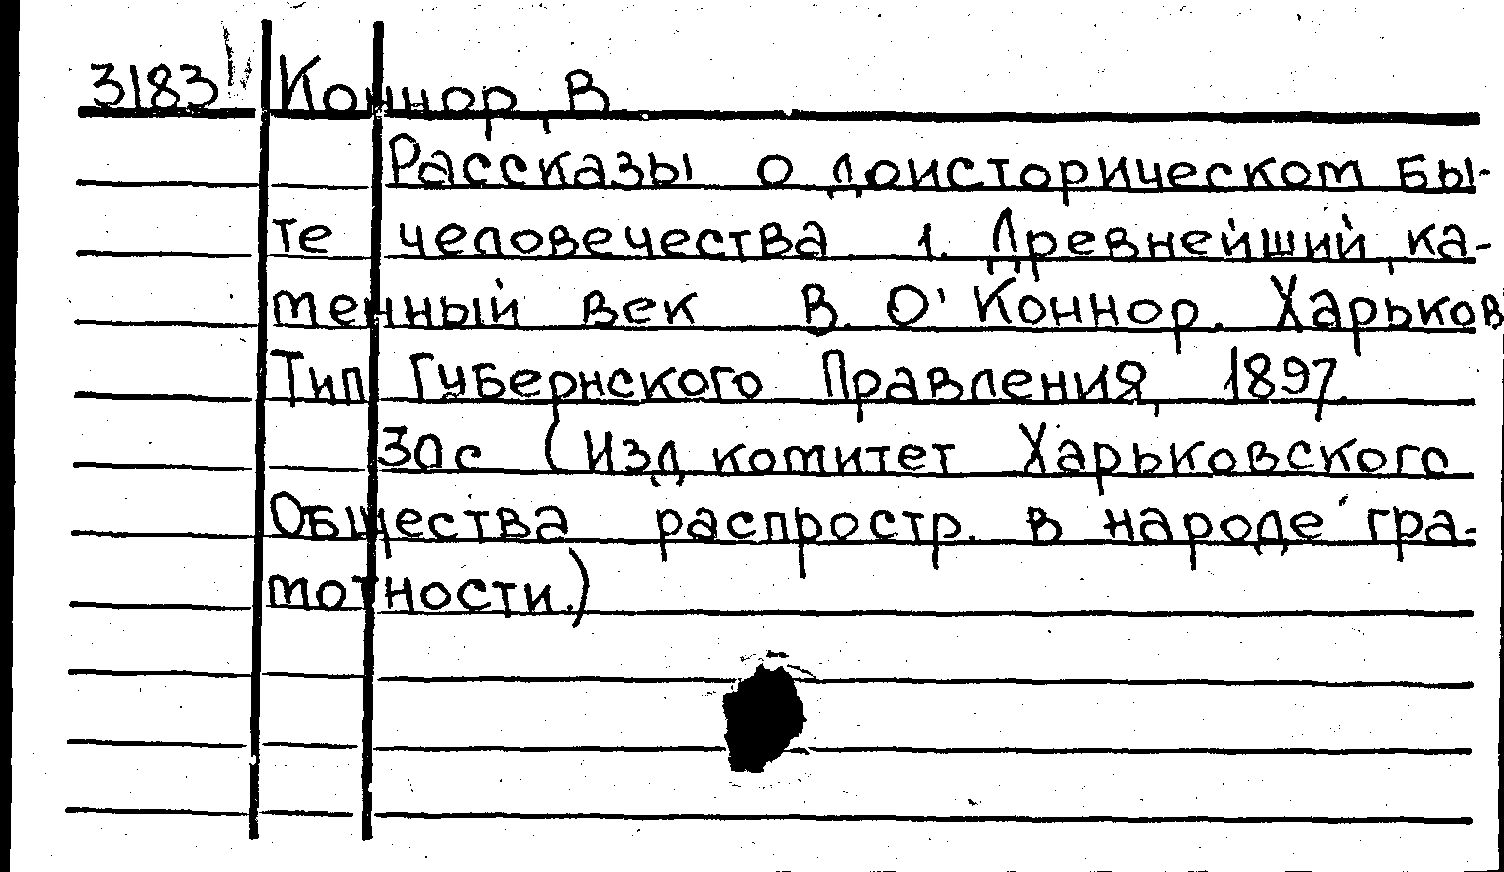 3183 Коннор, В
Рассказы о доисторическом бы-
те человечества 1. Древнейший, ка-
менный век В. О' Коннор. Харьков
Тип Губернского Правления, 1897.
30 с (Изд комитет Харьковского
Общества распростр. в народе гра-
мотности.)